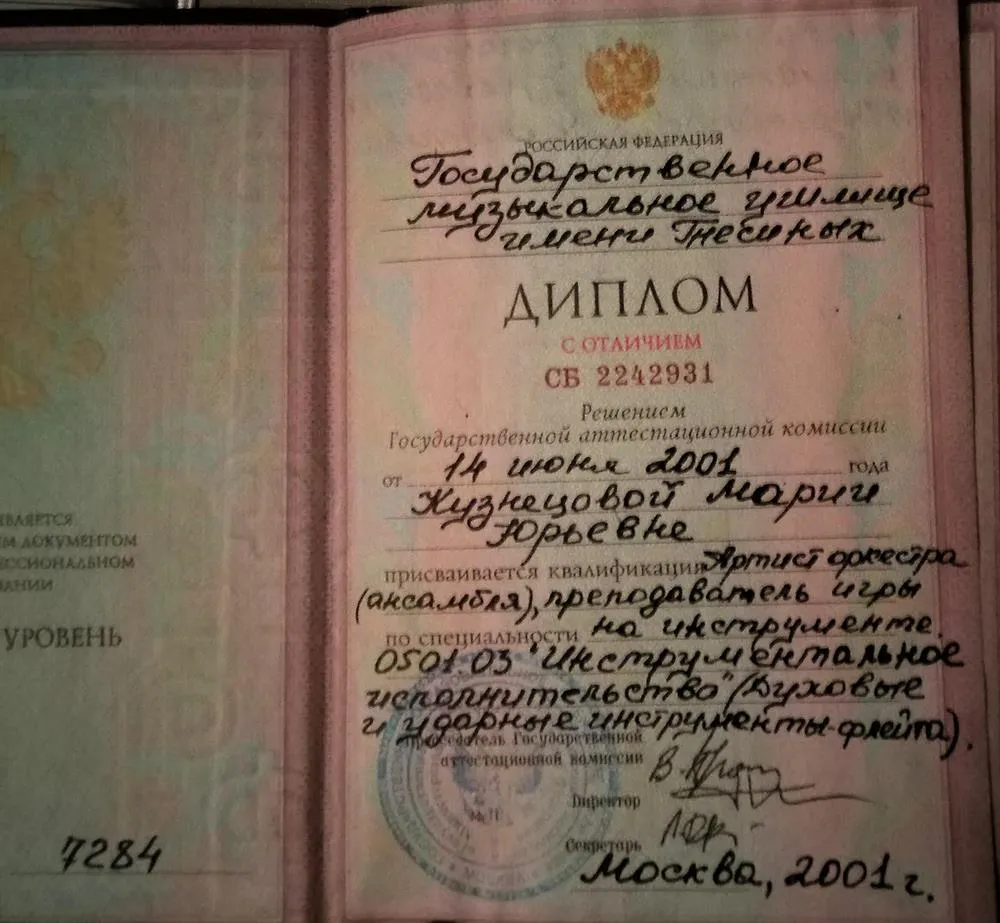 РОССИЙСКАЯ ФЕДЕРАЦИЯ
Государственное
музыкальное училище
имени Гнесиных
ДИПЛОМ
С ОТЛИЧИЕМ
СБ 2242931
Решением
Государственной аттестационной комиссии
от 14 июня 2001 года
Кузнецовой Марии
Юрьевне
присваивается квалификация Артист оркестра
(ансамбля), преподаватель игры
по специальности на инструменте.
0501.03 "Инструментальное
исполнительство" (Духовые
и ударные инструменты-флейта).
Председатель Государственной
аттестационной комиссии
Директор
Секретарь
Москва, 2001 г.
ВЛЯЕТСЯ
М ДОКУМЕНТОМ
ЕССИОНАЛЬНОМ
ВАНИИ
УРОВЕНЬ
7284